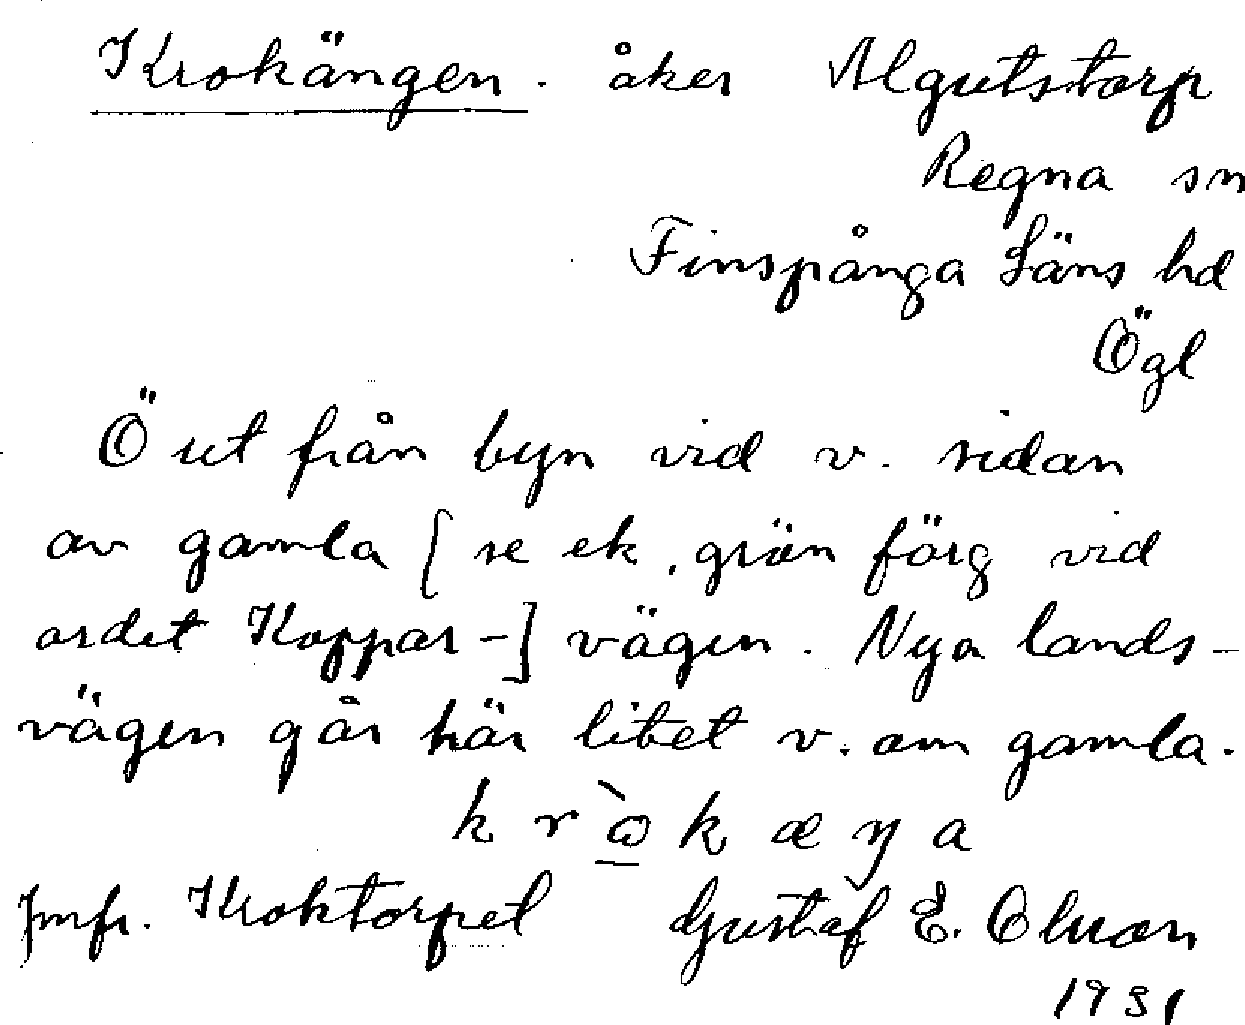 Krokängen. åker Algutstorp
Regna sn
Finspånga Läns hd
Ögl
Ö ut från byn vid v. sidan
av gamla [se ek. grön färg vid
ordet Koppar-] vägen. Nya lands-
vägen går här litet v. om gamla.
k r ὼ k æ ŋ a
Jmfr. Kroktorpet Gustaf E. Olsson
1931